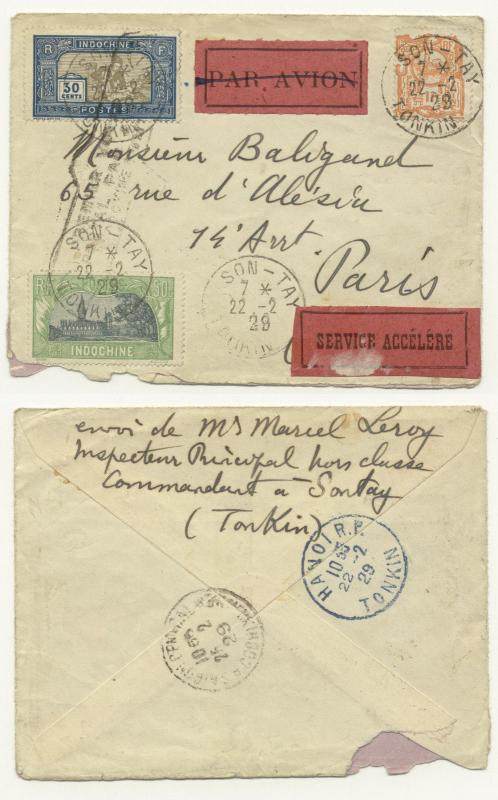 R F
INDOCHINE
30
CENTS
POSTES
PAR AVION
SON-TAY
7 *
22-2
29
TONKIN
Monsieur Baligand
65 rue d'Alésia
14e Arrt
Paris
SON-TAY
7 *
22-2
29
TONKIN
SON-TAY
7 *
22-2
29
TONKIN
INDOCHINE
SERVICE ACCÉLÉRÉ
envoi de Mr Marcel Leroy
Inspecteur Principal hors classe
Commandant à Sontay
(Tonkin)
HANOI R.P.
10 35
22-2
29
TONKIN
10
25
2
29